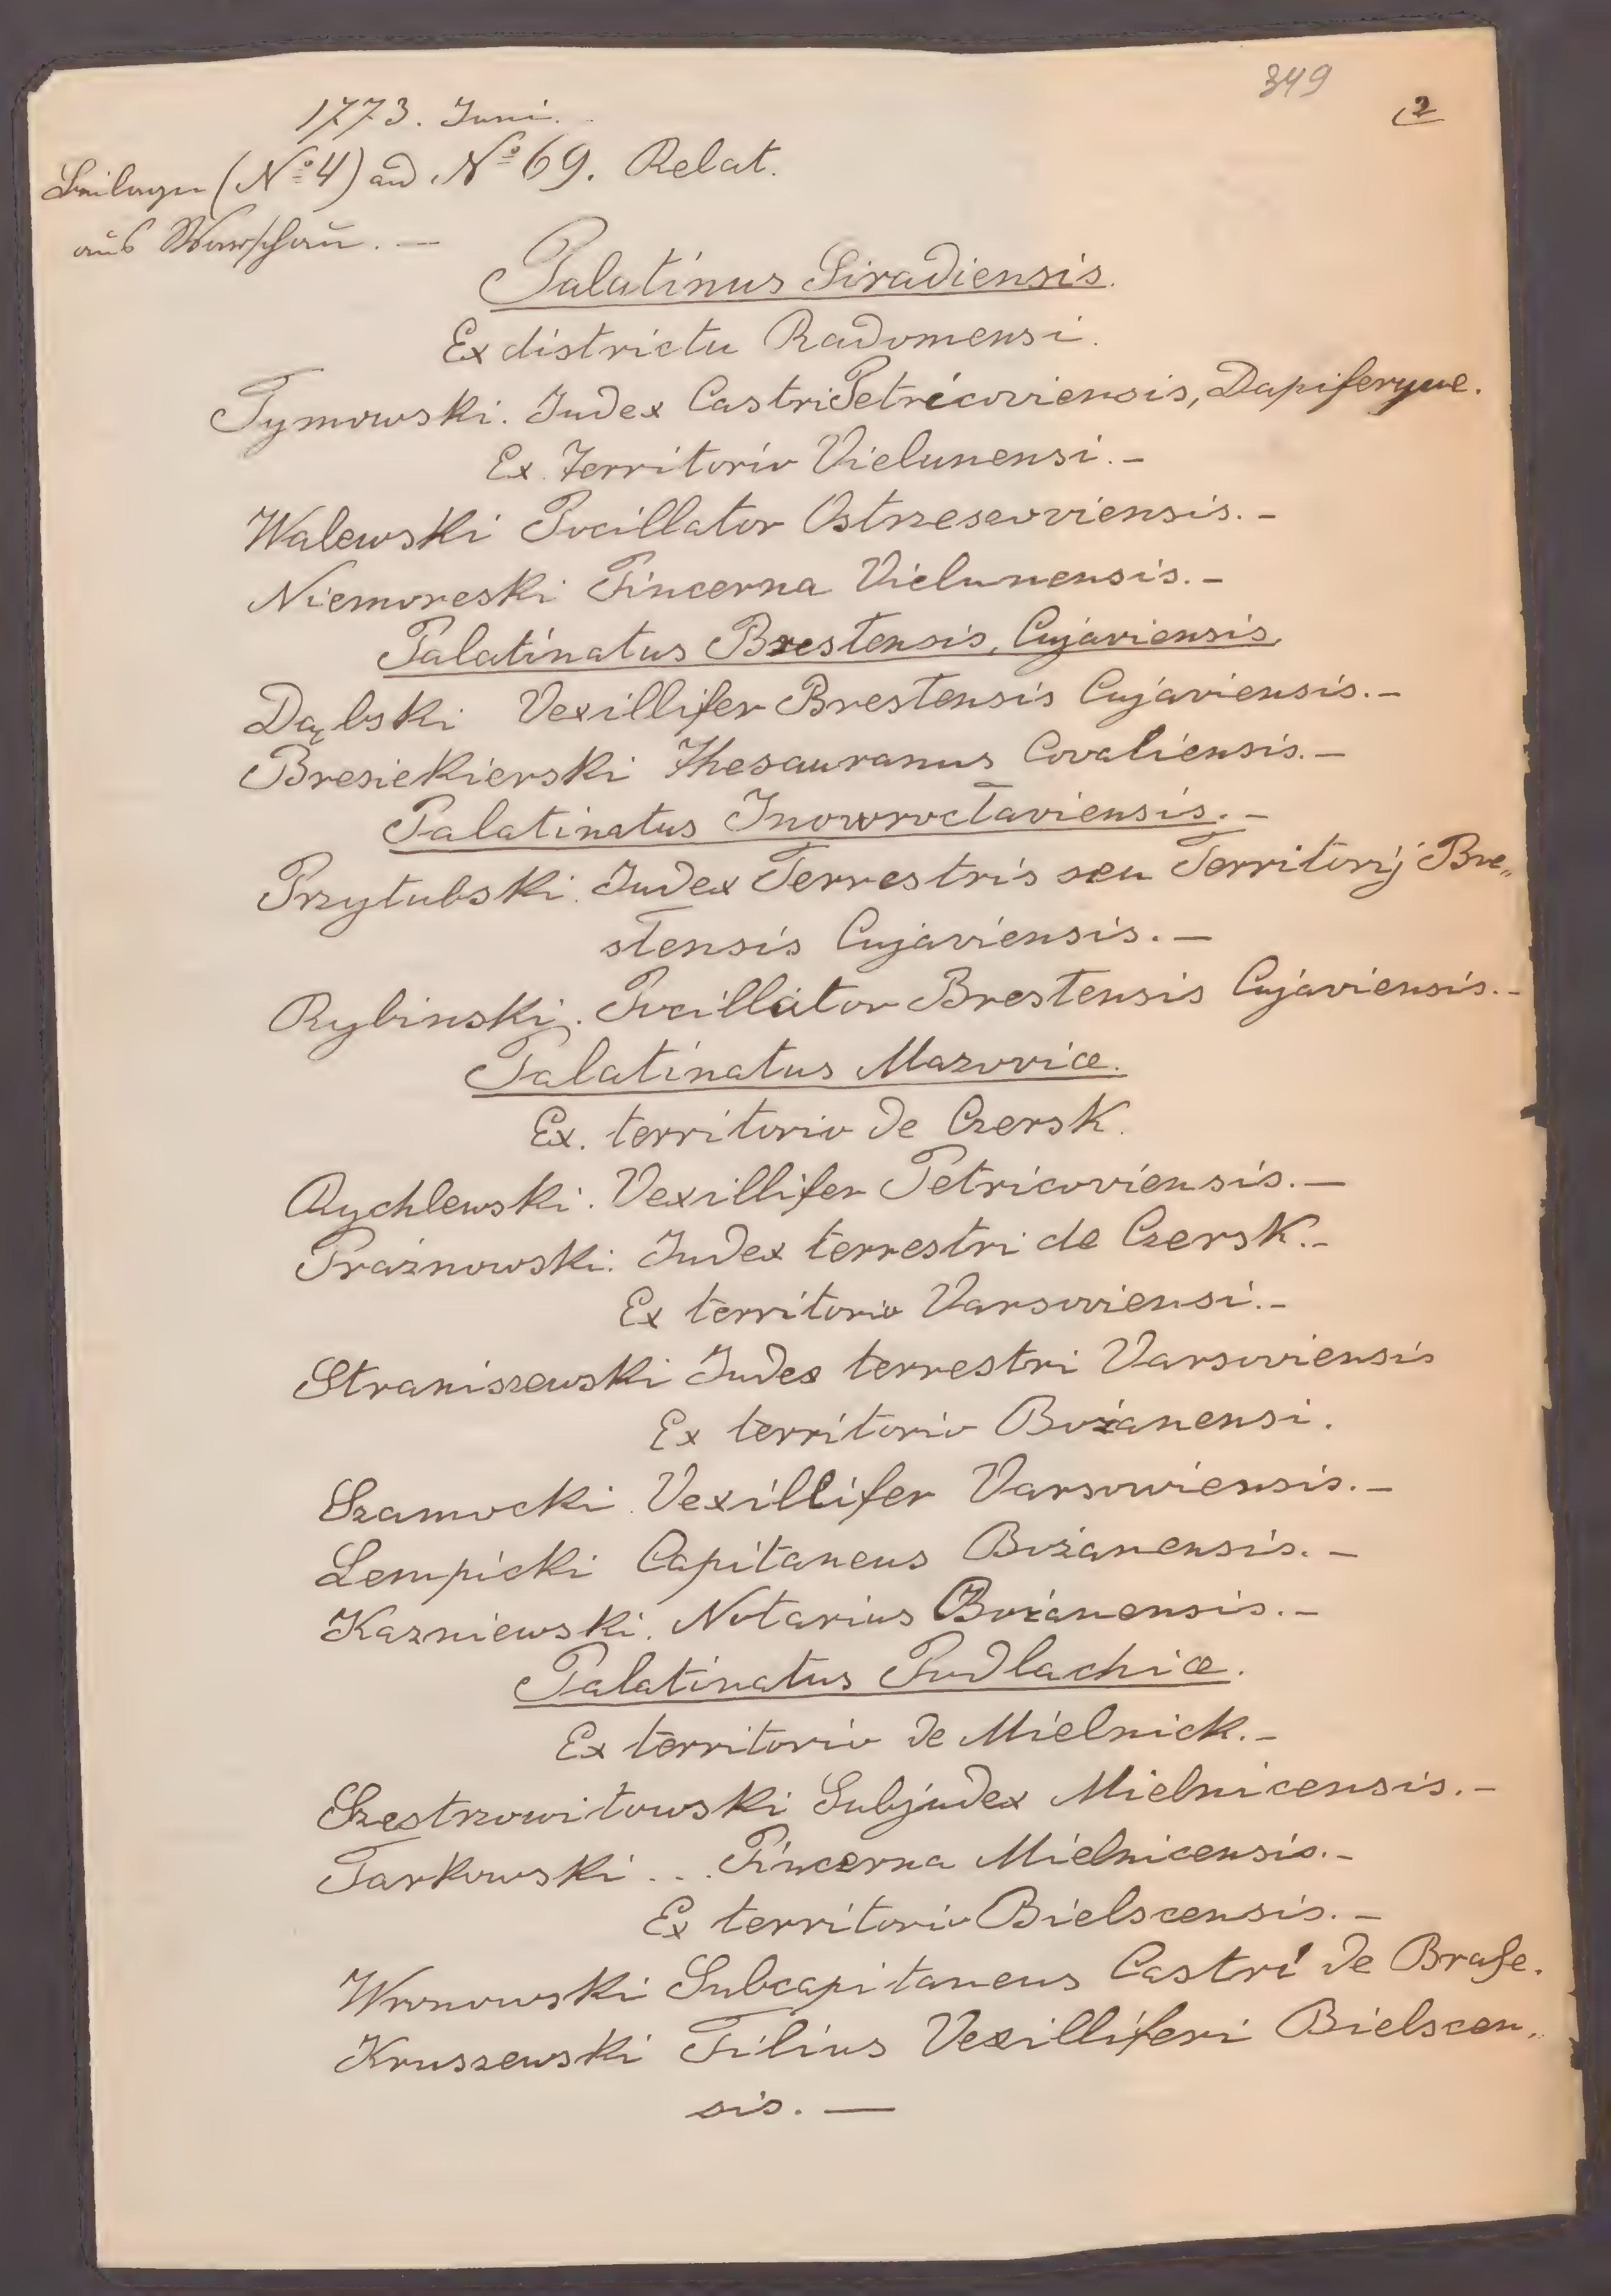 349
2
1773. Juni.
Beilagen (No 4) ad No 69. Relat.
aus Warschau. —
Palatinus Siradiensis.
Ex districtu Radomensi.
Tymowski. Judex Castri Petricoviensis, Dapiferque.
Ex. Territorio Vielunensi. –
Walewski Pocillator Ostrzesewviensis. –
Niemoreski Pincerna Vielunensis. –
Palatinatus Brestensis, Cujaviensis.
Dąbski Vexillifer Brestensis Cujaviensis. –
Bresiekierski Thesauranus Covaliensis. –
Palatinatus Inowroctaviensis. –
Przytubski. Judex Terrestris seu Territorij Bre„
stensis Cujaviensis. –
Rybinskij. Pocillator Brestensis Cujaviensis. –
Palatinatus Mazoviæ.
Ex. territorio de Czersk.
Rychlewski. Vexillifer Petricoviensis. –
Prażnowski. Judex terrestri de Czersk. –
Ex territorio Varsoviensi. –
Straniszewski Judex terrestri Varsoviensis
Ex territorio Bożanensi.
Szamocki. Vexillifer Varsowiensis. –
Lempicki Capitaneus Bożanensis. –
Kazniewski. Notarius Bożanensis. –
Palatinatus Podlachiæ.
Ex territorio de Mielnick. –
Szestrzowitowski Subjudex Mielnicensis. –
Tarkowski ... Pincerna Mielnicensis. –
Ex territorio Bielscensis. –
Wronowski Subcapitaneus Castri de Braße.
Kruszewski Filius Vexilliferi Bielscen„
sis. —